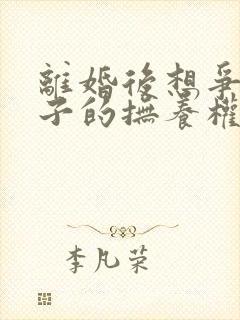 離婚後想爭
子的撫養權
李凡荣